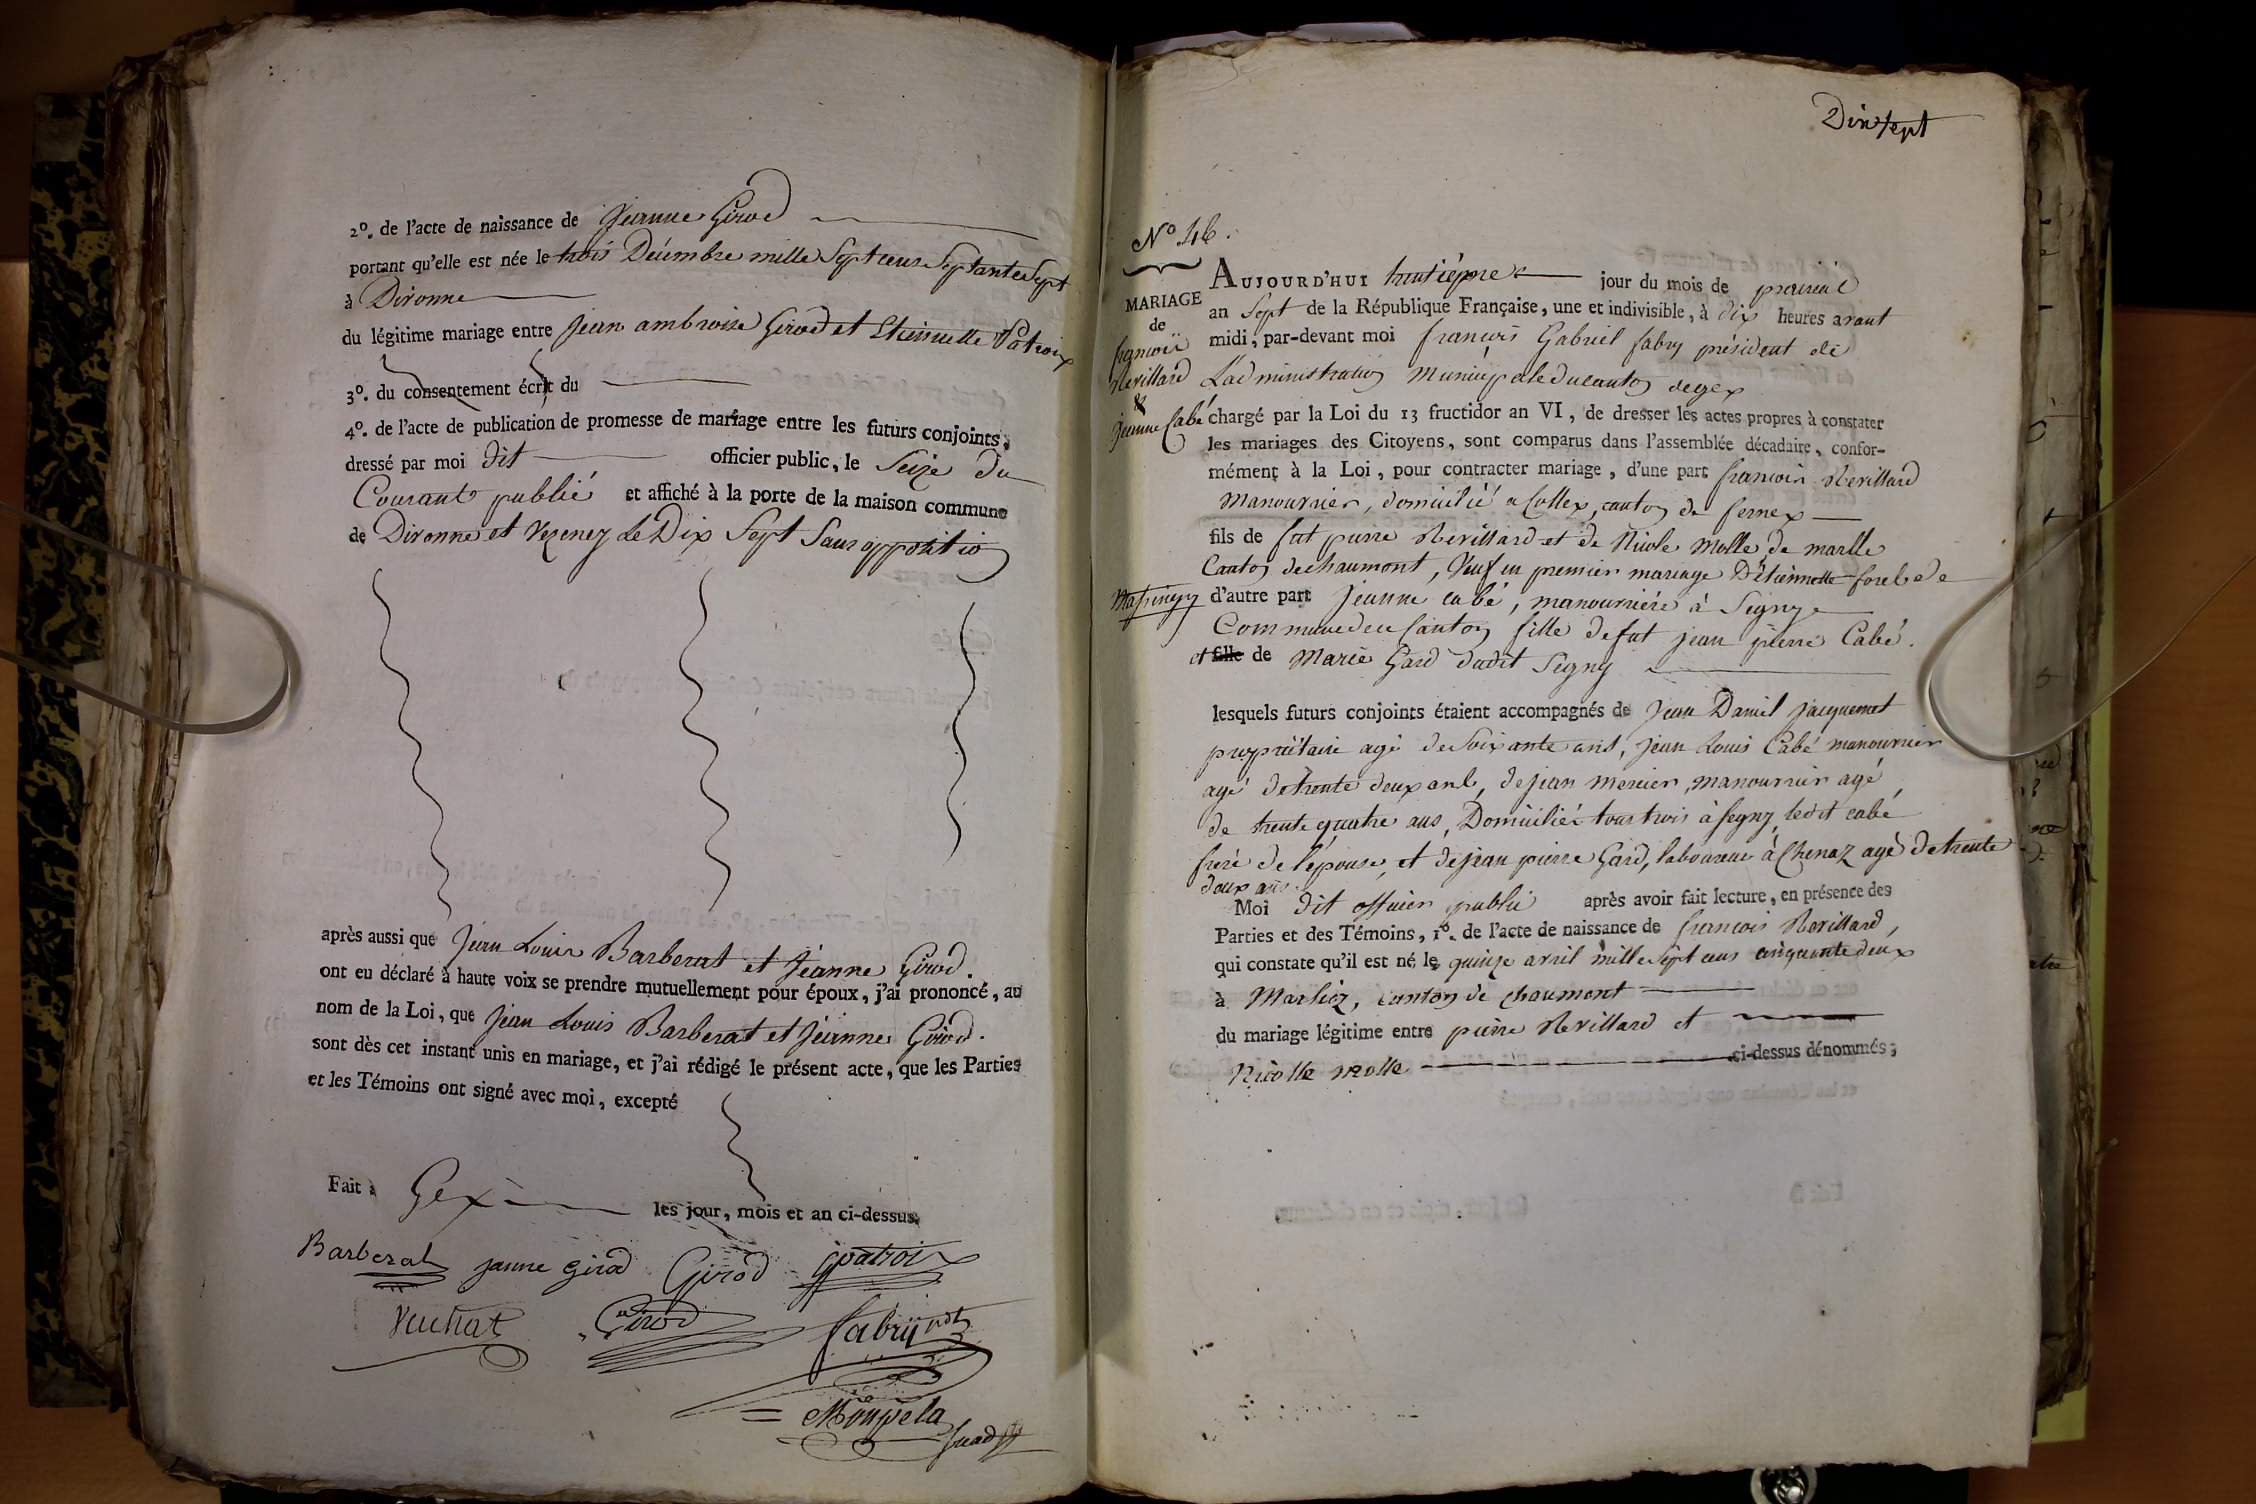 2º. de l'acte de naissance de Jeanne Girod
portant qu'elle est née le trois Décembre mille Sept cent Septante Sept
à Divonne
du légitime mariage entre Jean ambroise Girod et Etiennette Patroix
3º. du consentement écrit du
4º. de l'acte de publication de promesse de mariage entre les futurs conjoints,
dressé par moi dit officier public, le Seize du
Courant publié et affiché à la porte de la maison commune
de Divonne et Vezenez Le Dix Sept Sans opposition
après aussi que Jean Louis Barberat et Jeanne Girod.
ont eu déclaré à haute voix se prendre mutuellement pour époux, j'ai prononcé, au
nom de la Loi, que Jean Louis Barberat et Jeanne Girod.
sont dès cet instant unis en mariage, et j'ai rédigé le présent acte, que les Parties
et les Témoins ont signé avec moi, excepté
Fait à Gex les jour, mois et an ci-dessus.
Barberat janne girod Girod gpatroix
Vuchat Girod fabry pdt
Moupela
Dix sept
Nº 46.
MARIAGE
de
françois
Revillard
&
jeanne Cabé
AUJOURD'HUI huitiéme jour du mois de prairial
an Sept de la République Française, une et indivisible, à dix heures avant
midi, par-devant moi françois Gabriel fabry président de
L'administration Municipale du canton de gex
chargé par la Loi du 13 fructidor an VI, de dresser les actes propres à constater
les mariages des Citoyens, sont comparus dans l'assemblée décadaire, confor-
mément à la Loi, pour contracter mariage, d'une part françois Revillard
Manouvrier, domicilié a Collex, canton de fernex
fils de fut pierre Revillard et de Nicole Molle de marlle
Canton de chaumont, Veuf en premier mariage D'étiennette forel de
Massingy d'autre part jeanne cabé, manouvriére à Segny
Commune de ce Canton fille de fut jean pierre Cabé.
et fille de Marie Gard dudit Segny
lesquels futurs conjoints étaient accompagnés de Jean Daniel jacquemet
propriétaire agé de Soixante ans, jean Louis Cabé manouvrier
agé de trente deux ans, de jean mercier, manouvrier agé
de trente quatre ans, Domiciliés tous trois à segny, ledit cabé
frere de l'épouse, et de jean pierre Gard, laboureur à Chenaz agé de trente
deux ans.
Moi dit officier public après avoir fait lecture, en présence des
Parties et des Témoins, 1º. de l'acte de naissance de françois Revillard,
qui constate qu'il est né le quinze avril mille sept cens cinquante deux
à Marlioz, canton de chaumont
du mariage légitime entre pierre Revillard et
Nicolle molle ci-dessus dénommés;